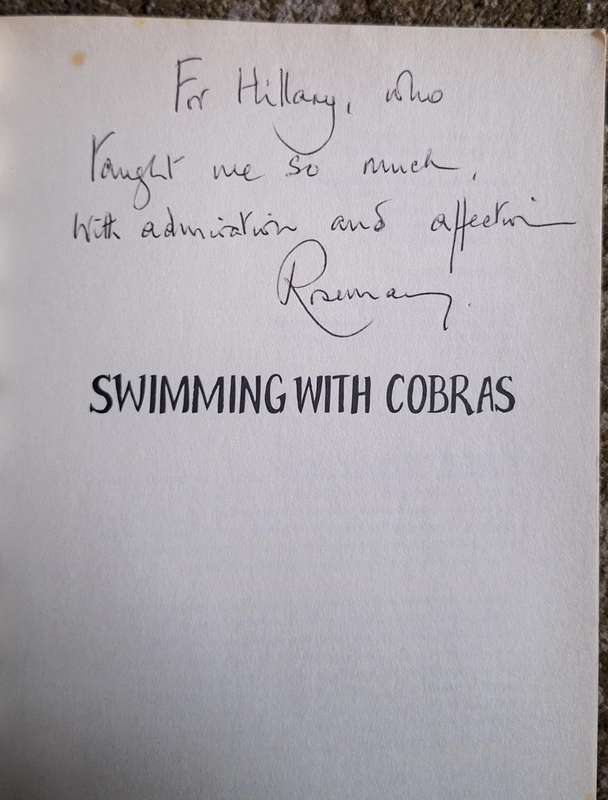 For Hillary, who
taught me so much,
With admiration and affection
Rosemary.
SWIMMING WITH COBRAS